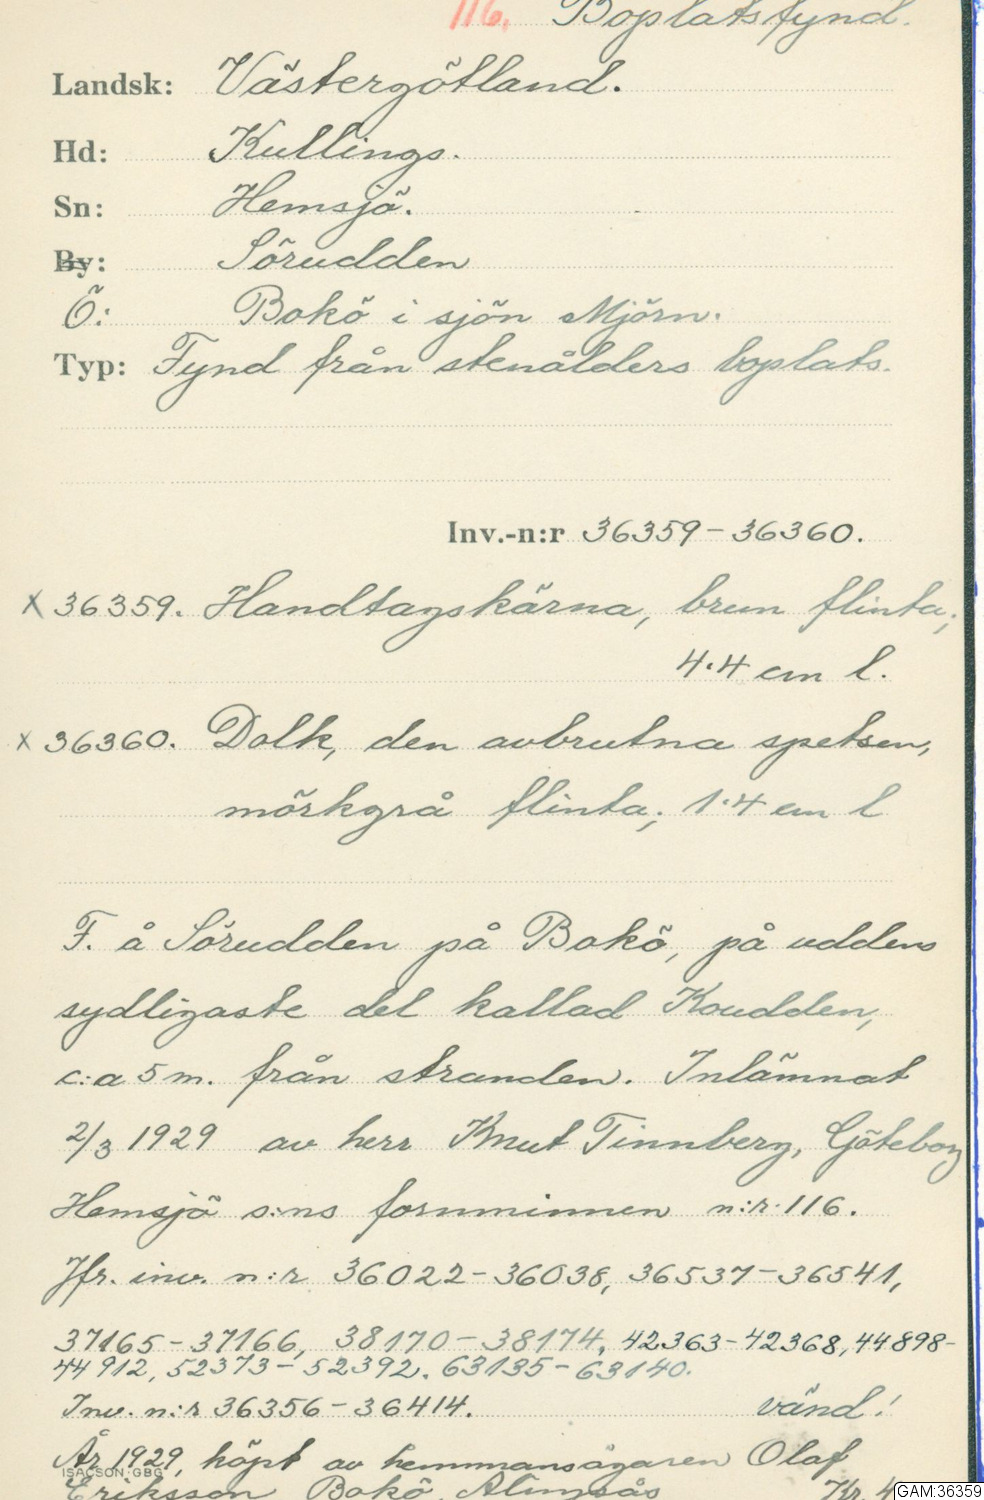 116. Boplatsfynd.
Landsk: Västergötland.
Hd: Kullings.
Sn: Hemsjö.
By: Sörudden
Ö: Bokö i sjön Mjörn.
Typ: Fynd från stenålders boplats.
Inv.-n:r 36359-36360.
x 36359. Handtagskärna, brun flinta;
4·4 cm l.
x 36360. Dolk, den avbrutna spetsen,
mörkgrå flinta; 1·4 cm l
F. å Sörudden på Bokö, på uddens
sydligaste del kallad Koudden,
c:a 5 m. från stranden. Inlämnat
2/3 1929 av herr Knut Tinnberg, Göteborg
Hemsjö s:ns fornminnen n:r 116.
Jfr. inv. n:r 36022-36038, 36537-36541,
37165-37166, 38170-38174, 42363-42368, 44898-
44912, 52373-52392. 63135-63140.
Inv. n:r 36356-36414. vänd!
År 1929, köpt av hemmansägaren Olaf
ISACSON GBG
Eriksson Bokö, Alingsås Kr. 4
GAM:36359